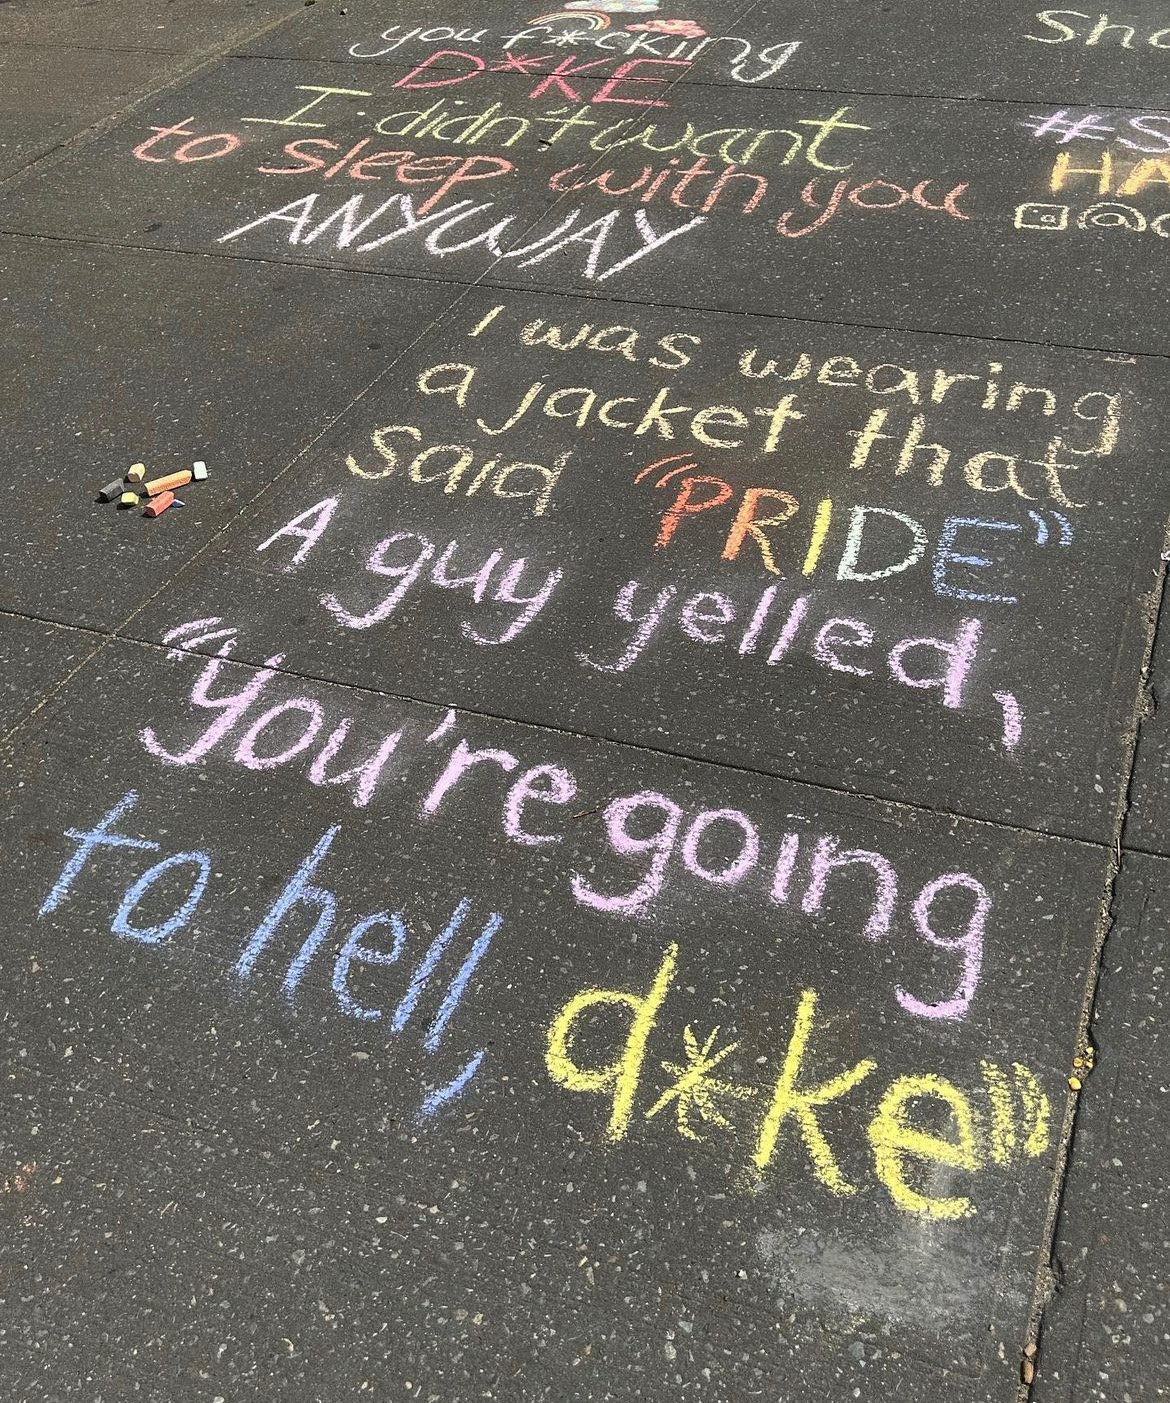 you f*cking
D*KE
I didn't want
to sleep with you
ANYWAY
I was wearing
a jacket that
said "PRIDE"
A guy yelled,
"You're going
to hell,
d*ke"